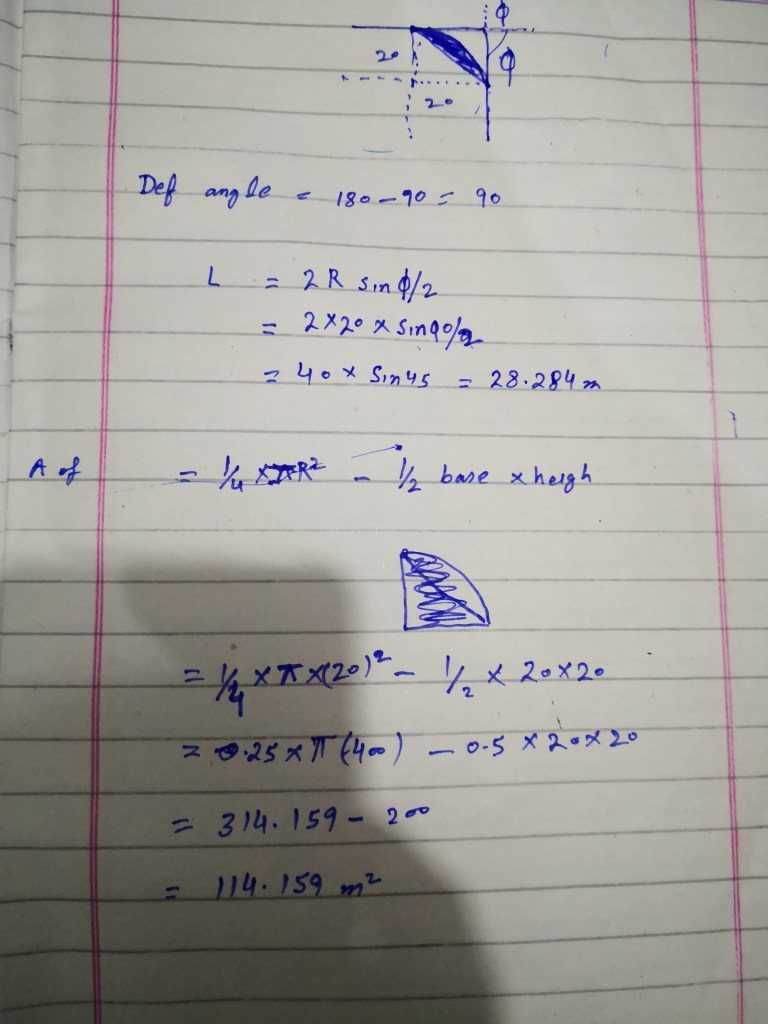 φ
20
φ
20
Def angle = 180 - 90 = 90
L = 2 R sin φ/2
= 2 × 20 × sin 90/2
= 40 × Sin 45 = 28.284 m
A of = 1/4 × πR² - 1/2 base × heigh
= 1/4 × π × (20)² - 1/2 × 20 × 20
= 0.25 × π (400) - 0.5 × 20 × 20
= 314.159 - 200
= 114.159 m²